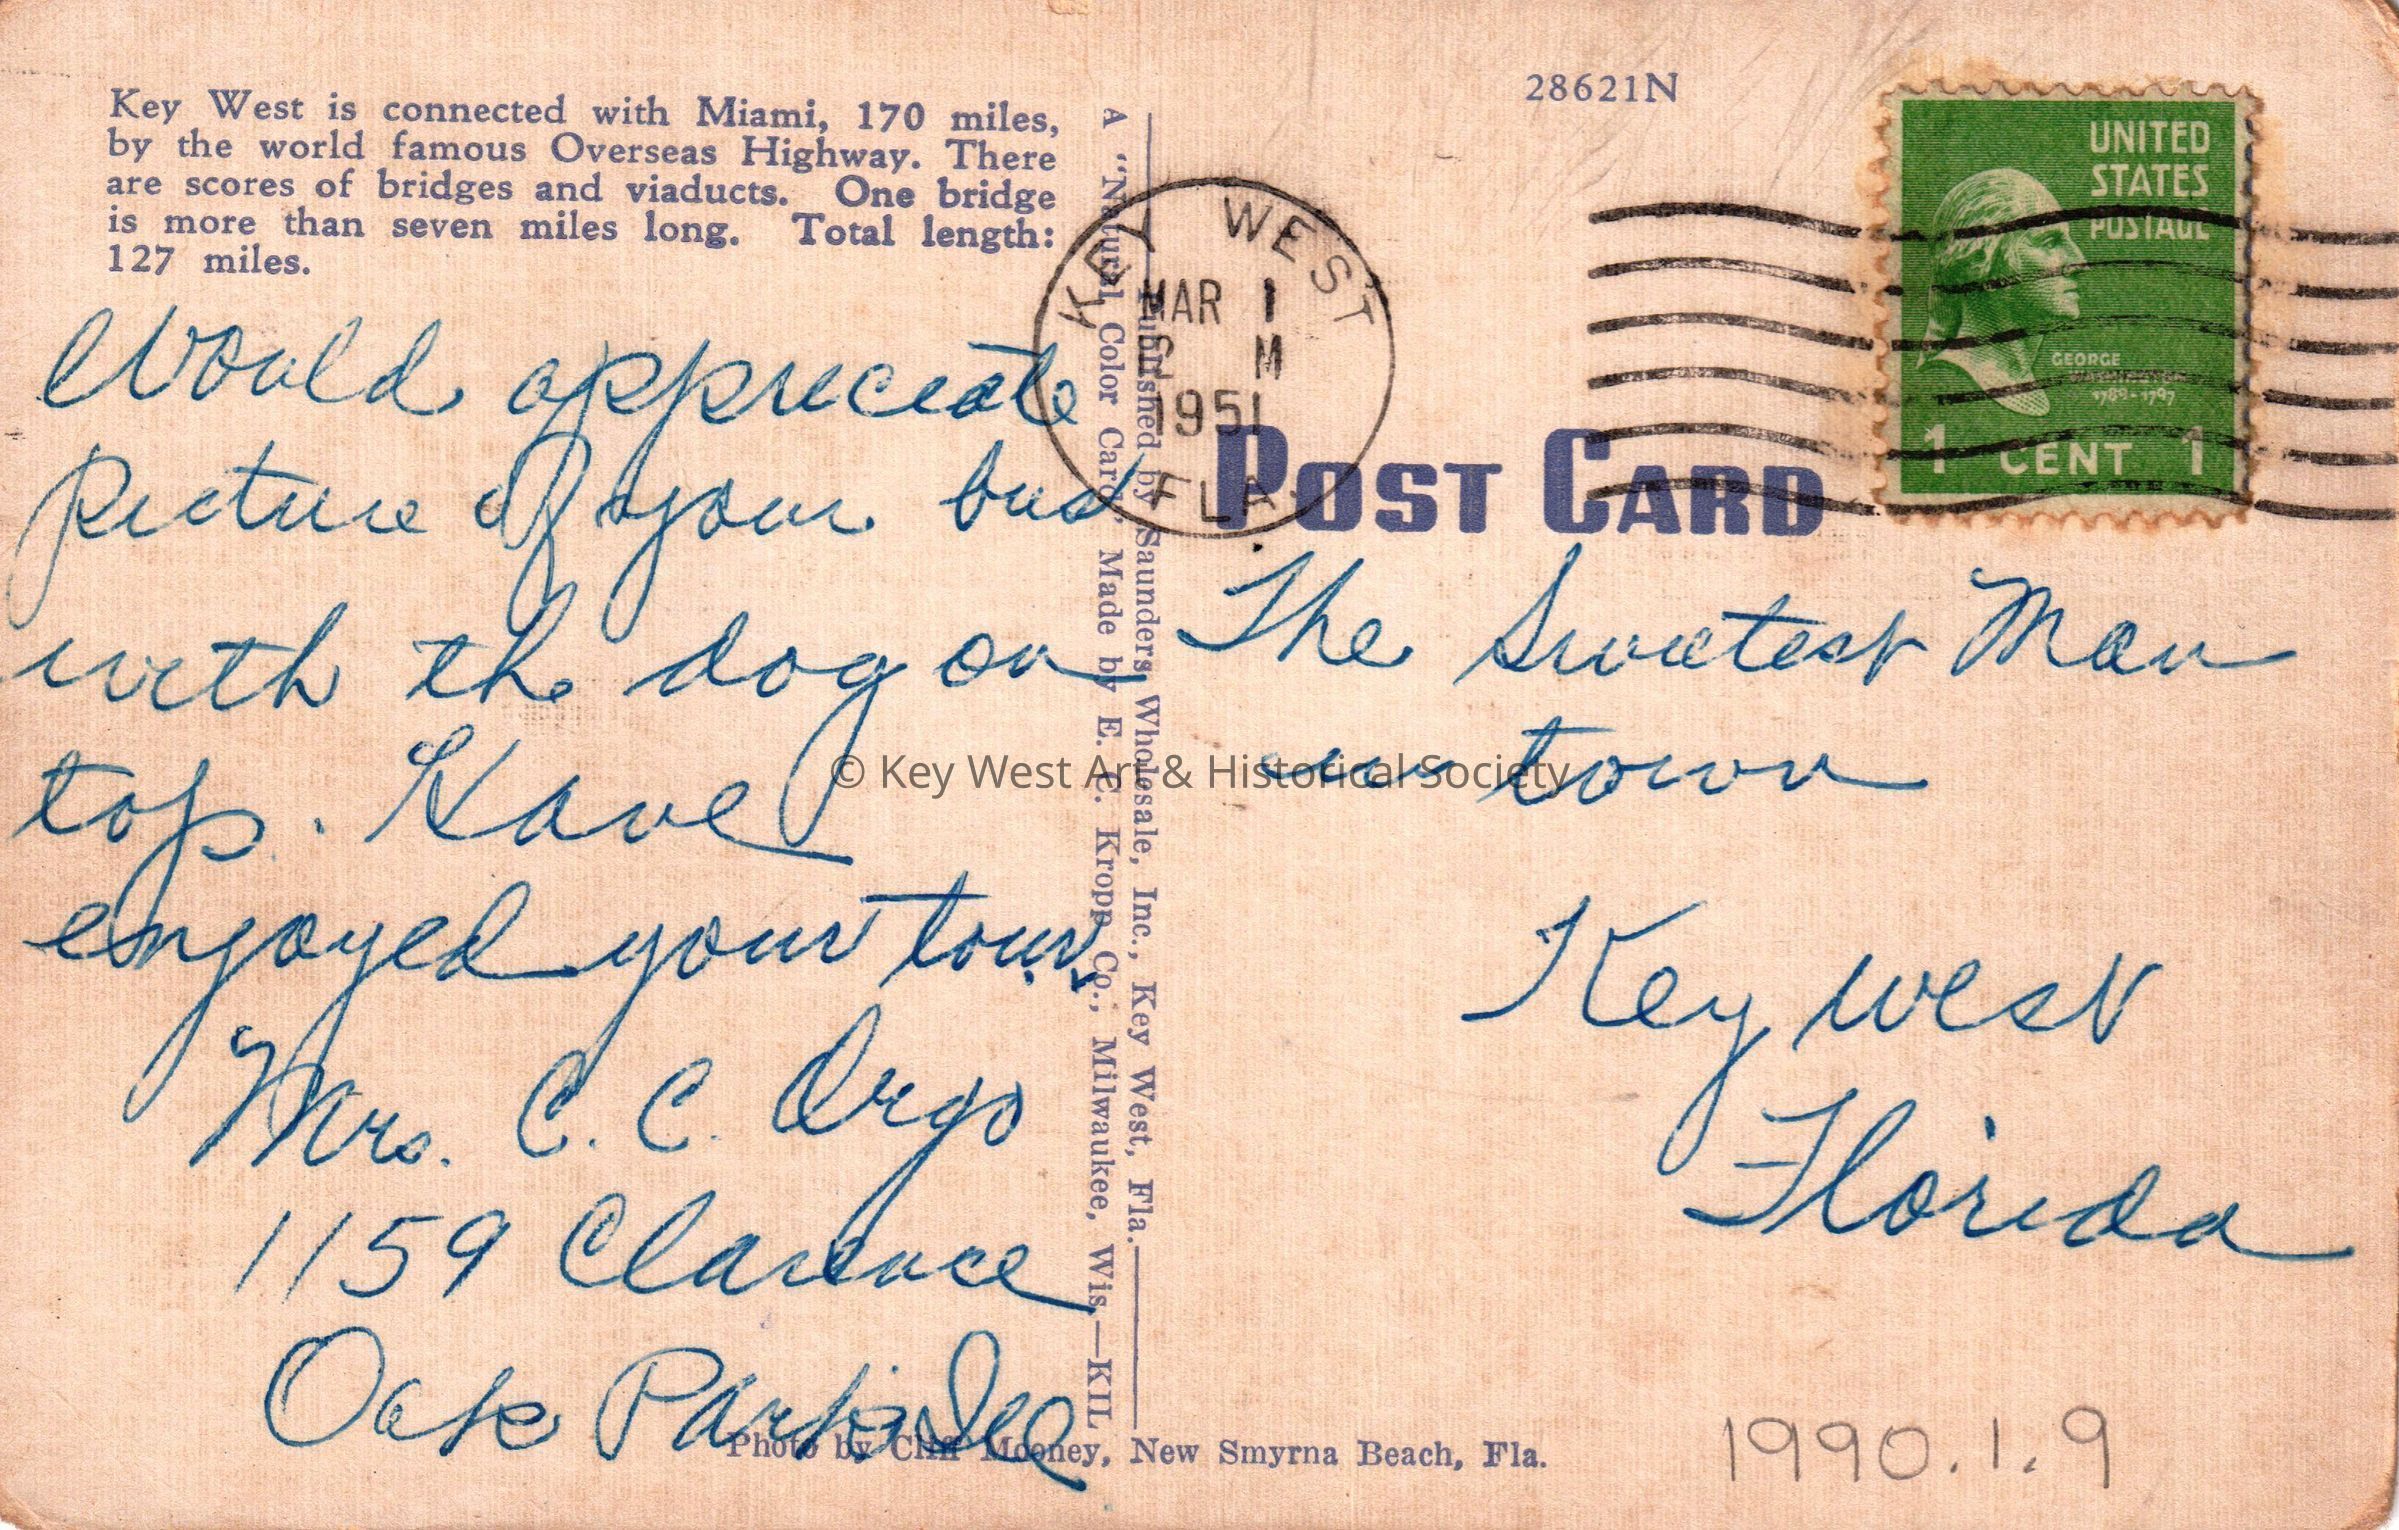 Key West is connected with Miami, 170 miles,
by the world famous Overseas Highway. There
are scores of bridges and viaducts. One bridge
is more than seven miles long. Total length:
127 miles.
Would appreciate
picture of your bus
with the dog on
top. Have
enjoyed your tour.
Mrs. C. C. Orgo
1159 Clarence
Oak Park Ill
A "Natural Color Card" Made by E. C. Kropp Co., Milwaukee, Wis.—KIL
Published by Saunders Wholesale, Inc., Key West, Fla.
28621N
UNITED
STATES
POSTAGE
GEORGE
WASHINGTON
1789-1797
1 CENT 1
KEY WEST
MAR 1
M
1951
FLA.
POST CARD
The Sweetest Man
in town
Key West
Florida
© Key West Art & Historical Society
Photo by Cliff Mooney, New Smyrna Beach, Fla.
1990.1.9